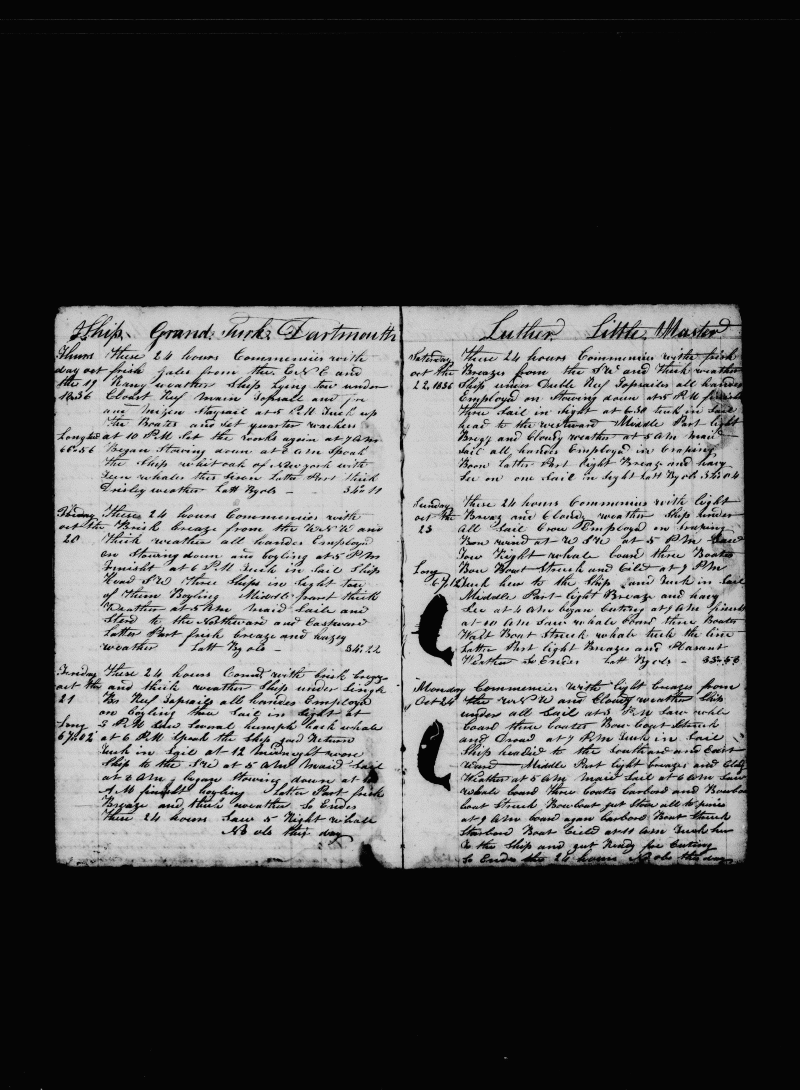 Ship Grand Turk Dartmouth
Thurs these 24 hours Commencies with
day oct frish gales from the E N E and
the 19 hazy weather Ship Lying too under
1836 Closet Ref main Topsail and
and mizen staysail at 5 P M tuck up
the Boats and set quarter watches
Longtud at 10 P M Set the works agoin at 7 A m
66=56 Began Stowing down at 8 A m Spoak
the Ship whit oak of New york with
whales this Latter Part thick
Drisley weather Latt By obs - 34=11
Friday these 24 hours Commencies with
oct the Brisk breaze from the W N W and
20 thick weather all handes Employd
on Stowing down and boyling at 5 P m
finisht at 6 P M tuck in Sail Ship
Head S W three Ships in Sight tou
of them Boyling Middle part thick
Weather at 5 A m maid Sail and
Sterd to the Northward and Eastward
Latter Part frish breaze and hazey
weather Latt By obs - 34=22
these 24 hours Comd with brisk breaze
oct the and thick weather Ship under Singl
21 Ref Topsails all handes Employd
on boyling three Sail in Sight at
Long 5 P M Saw Several humph back whale
67=02 at 6 P M Spoak the Ship and Return
tuck in Sail at 12 midnight wore
Ship to the S W at 5 A m maid Sail
at 8 A m began Stowing down at 10
A M finisht boyling Latter Part frish
Breaze and thick weather So Endes
these 24 hours Saw 5 Right whale
No obs this day
Luther Little Master
Saturday these 24 hours Commencies with frish
oct the Breazes from the S W and thick weather
22, 1836 Ship under Duble Ref Topsailes all handes
Employd on Stowing down at 5 P M finisht
three Sail in Sight at 6=30 tuck in Sail
head to the westward Middle Part light
Breaz and Cloudy weather at 5 A m maid
Sail all handes Employd in Craping
Boon Latter Part light Breaz and hazy
See on one Sail in Sight Latt By obs 34=04
Sunday these 24 hours Commencies with light
oct the Breaz and Cloudy weather Ship under
23 all Sail Crew Employd on Craping
Bon wind at W S W at 5 P M Saw
Tow Right whale Loard three Boates
Long Bow Bowt Struck and Cild at 7 P M
67=12 tuck hew to the Ship and tuck in Sail
Middle Part light Breaz and hazy
See at 6 A m began Cuting at 9 A m finisht
at 10 A m Saw whale Loard three Boates
Wast Boat Struck whale tuck the line
Latter Part light Breazes and Plasant
Weather So Endes Latt By obs - 33=53
Monday Commencies with light breazes from
Oct 24 the W N W and Cloudy weather Ship
under all Sail at 3 P M Saw whale
Loard three Boates Bow Boat Struck
and at 7 P M tuck in Sail
Ship headed to the Southard and East
ward Middle Part light breazes and Cloudy
Weather at 5 A m maid Sail at 6 A m Saw
whale Loard three Boates Larbord and Bowboat
boat Struck Bow Boat got Stove all to pieces
at 9 A m Loard agan Larbord Boat Struck
Starbord Boat Cield at 11 A m tuck hew
to the Ship and got Ready for Cuting
So Endes this 24 hours No obs this day